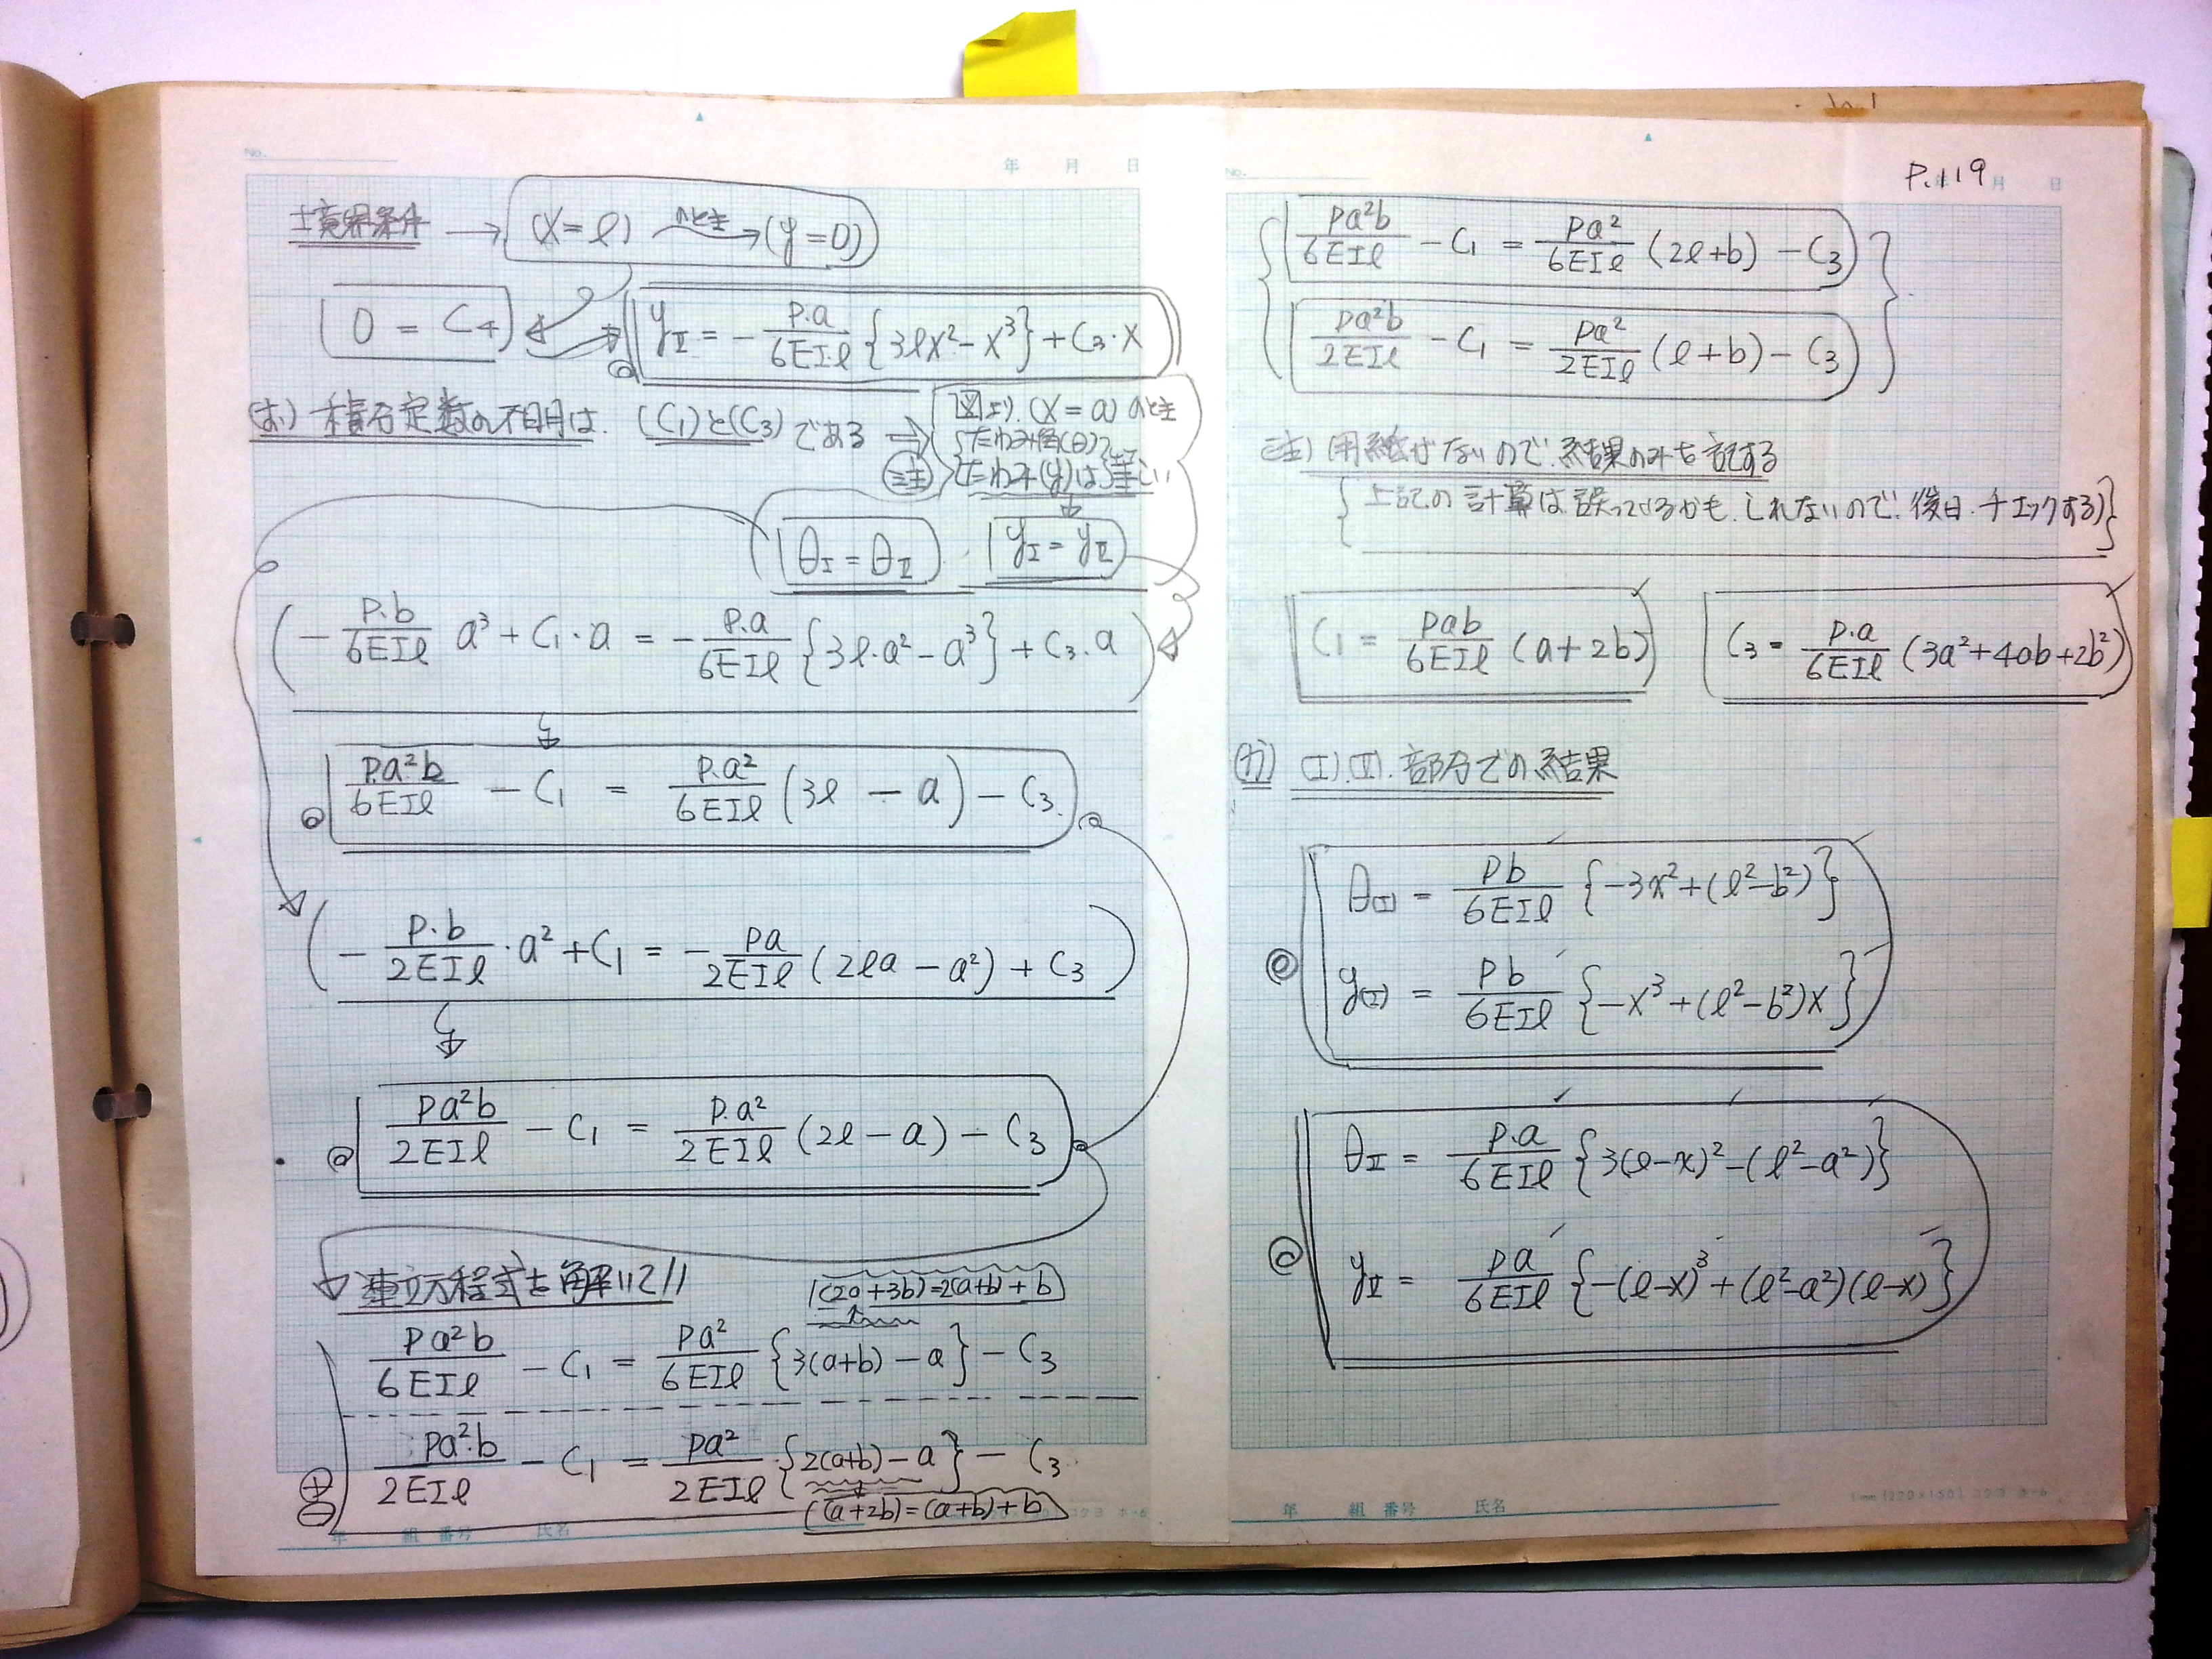 No.
年 月 日
境界条件 → (x=l) のとき→ (y=0)
0 = C₄
y_Ⅱ = - P·a/6EI·l {3lx² - x³} + C₃·x
(お) 積分定数の不明は (C₁)と(C₃)である ⇒
図より、(x=a)のとき
たわみ角(θ)
注 たわみ(y)は等しい
θ_Ⅰ = θ_Ⅱ · y_Ⅰ = y_Ⅱ
(- P·b/6EIl a³ + C₁·a = - P·a/6EIl {3l·a² - a³} + C₃·a)
P·a²b/6EIl - C₁ = P·a²/6EIl (3l - a) - C₃
(- P·b/2EIl ·a² + C₁ = - Pa/2EIl (2la - a²) + C₃)
Pa²b/2EIl - C₁ = P·a²/2EIl (2l - a) - C₃
連立方程式を解いて//
(2a+3b) = 2(a+b) + b
Pa²b/6EIl - C₁ = Pa²/6EIl {3(a+b) - a} - C₃
Pa²·b/2EIl - C₁ = Pa²/2EIl {2(a+b) - a} - C₃
(a+2b) = (a+b) + b
年 組 番号 氏名
No.
P.119
年 月 日
Pa²b/6EIl - C₁ = Pa²/6EIl (2l+b) - C₃
Pa²b/2EIl - C₁ = Pa²/2EIl (l+b) - C₃
注) 用紙がないので、結果のみを記する
{上記の計算は誤っているかも、しれないので、後日、チェックする)}
C₁ = Pab/6EIl (a+2b)
C₃ = P·a/6EIl (3a²+4ab+2b²)
(か) (Ⅰ).(Ⅱ). 部分での結果
θ(Ⅰ) = Pb/6EIl {-3x²+(l²-b²)}
y(Ⅰ) = Pb/6EIl {-x³+(l²-b²)x}
θ_Ⅱ = P·a/6EIl {3(l-x)²-(l²-a²)}
y_Ⅱ = Pa/6EIl {-(l-x)³+(l²-a²)(l-x)}
年 組 番号 氏名